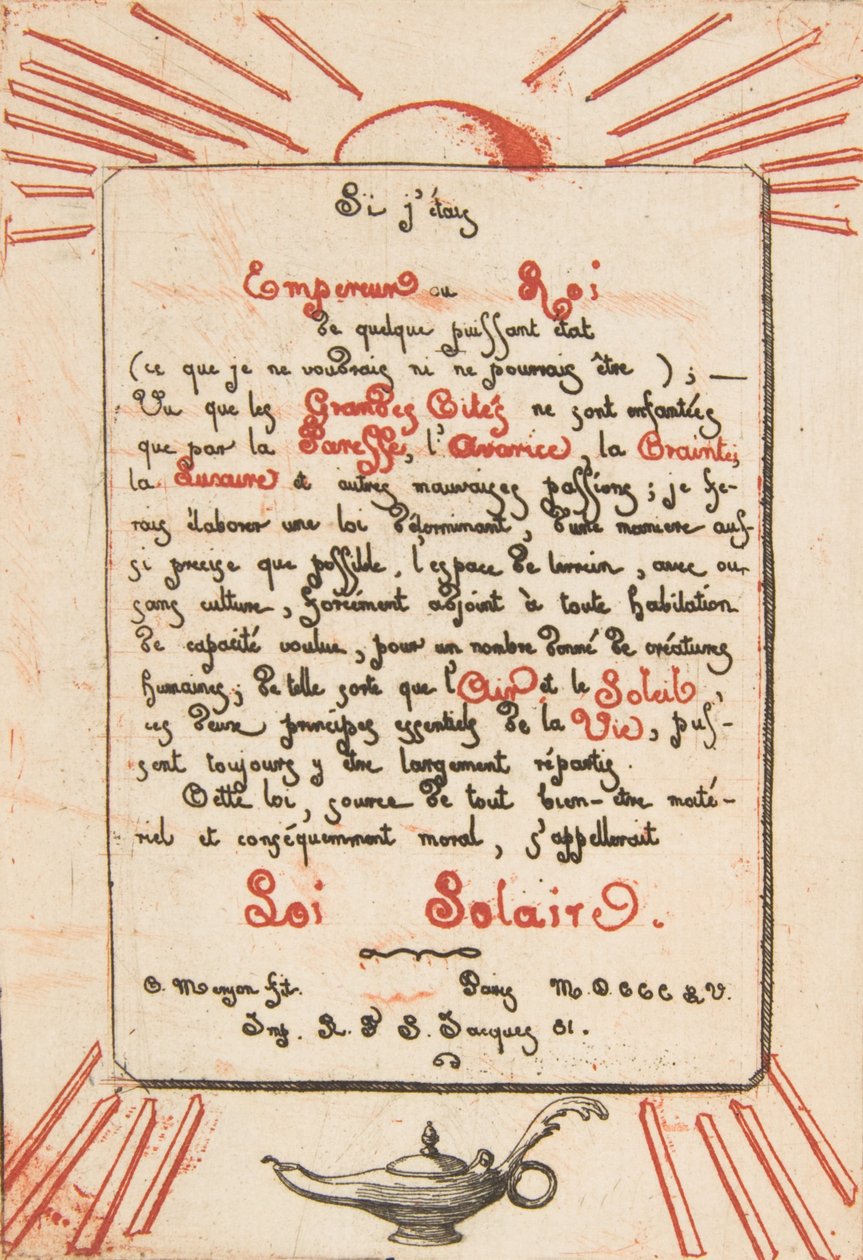 Si j'étais
Empereur ou Roi
de quelque puissant état
(ce que je ne voudrais ni ne pourrais être) ; —
Vu que les Grandes Cités ne sont enfantées
que par la Paresse, l'Avarice, la Crainte,
la Luxure et autres mauvaises passions ; je fe-
rais élaborer une loi déterminant, d'une maniere aus-
si precise que possible, l'espace de terrein, avec ou
sans culture, forcément adjoint à toute habitation
de capacité voulue, pour un nombre donné de créatures
humaines ; de telle sorte que l'Air et le Soleil,
ces deux principes essentiels de la Vie, puis-
sent toujours y être largement répartis.
Cette loi, source de tout bien-être maté-
riel et conséquemment moral, s'appellerait
Loi Solaire.
C. Meryon fit. Paris M.D.CCC LV.
Imp. R. S. Jacques 81.